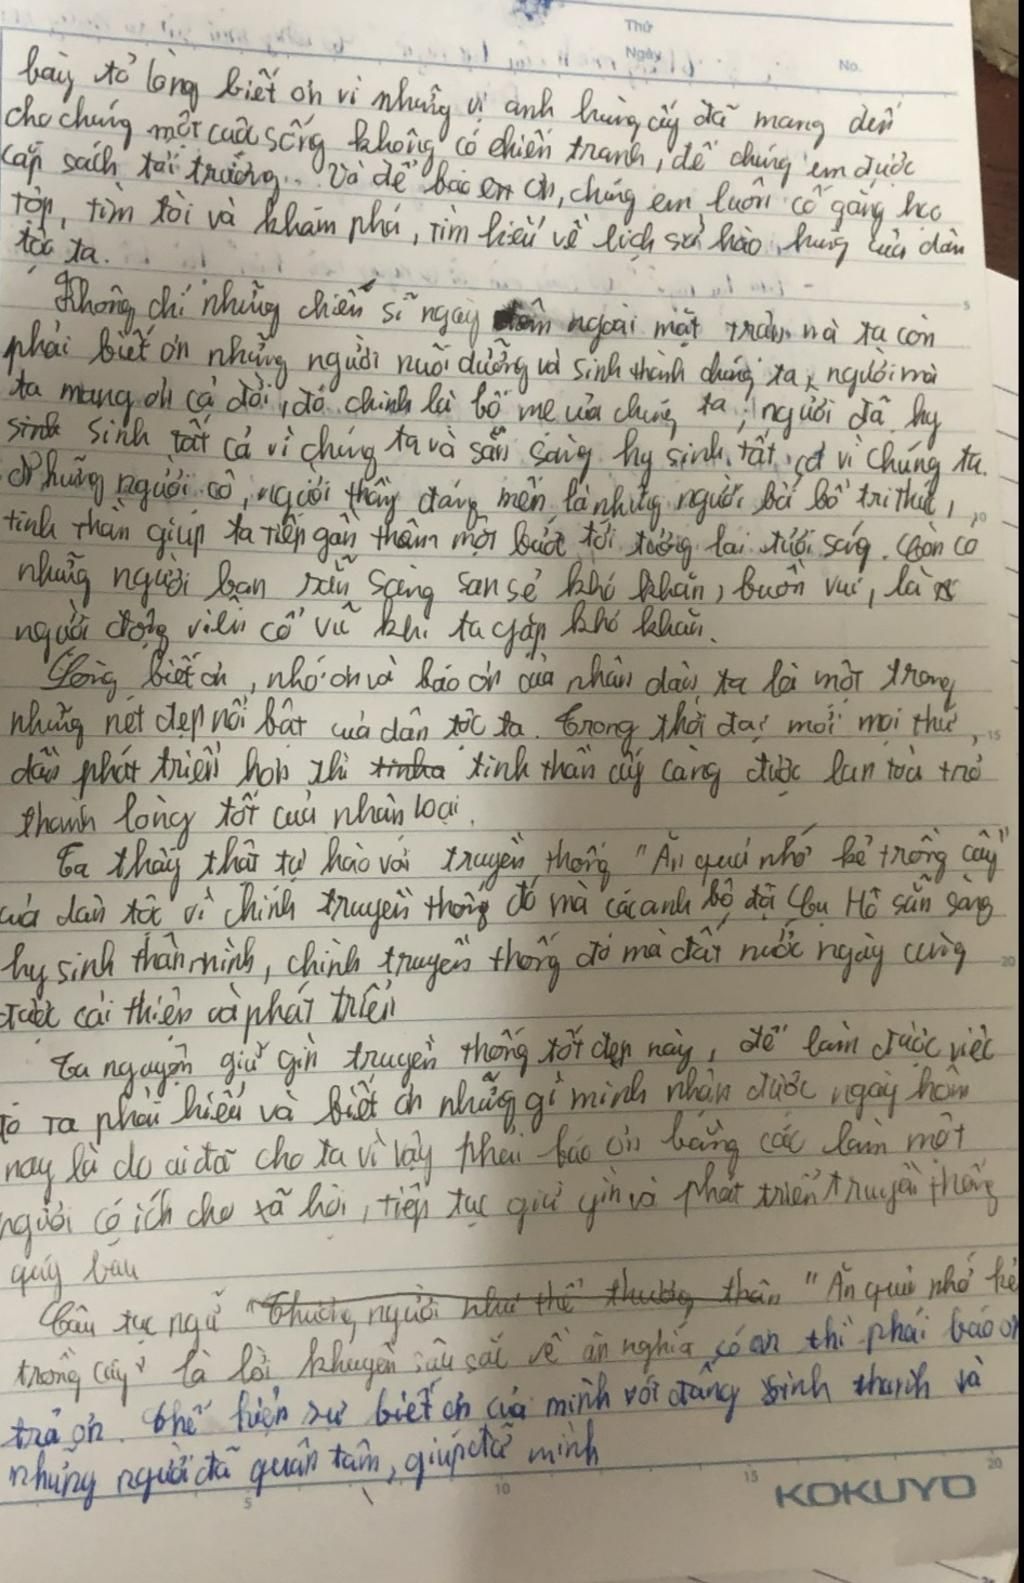 Thứ
Ngày
No.
bày tỏ lòng biết ơn vì những vị anh hùng ấy đã mang đến
cho chúng một cuộc sống không có chiến tranh, để chúng em được
cắp sách tới trường. Và để báo ơn, chúng em luôn cố gắng học
tập, tìm tòi và khám phá, tìm hiểu về lịch sử hào hùng của dân
tộc ta.
Không chỉ những chiến sĩ ngày đêm ngoài mặt trận mà ta còn
phải biết ơn những người nuôi dưỡng và sinh thành chúng ta, người mà
ta mang ơn cả đời, đó chính là bố mẹ của chúng ta, người đã hy
sinh tất cả vì chúng ta và sẵn sàng hy sinh tất cả vì chúng ta.
Những người cô, người thầy đáng mến là những người bù bổ tri thức,
tinh thần giúp ta tiếp gần thêm một bước tới tương lai tươi sáng. Còn có
những người bạn sẵn sàng san sẻ khó khăn, buồn vui, là
người động viên cổ vũ khi ta gặp khó khăn.
Lòng biết ơn, nhớ ơn và báo ơn của nhân dân ta là một trong
những nét đẹp nổi bật của dân tộc ta. Trong thời đại mới mọi thứ
dần phát triển hơn thì tinh thần ấy càng được lan toả trở
thành lòng tốt của nhân loại.
Ta thấy thật tự hào với truyền thống "Ăn quả nhớ kẻ trồng cây"
của dân tộc vì chính truyền thống đó mà các anh bộ đội Cụ Hồ sẵn sàng
hy sinh thân mình, chính truyền thống đó mà đất nước ngày cùng
được cải thiện và phát triển
Ta nguyện giữ gìn truyền thống tốt đẹp này, để làm được việc
đó ta phải hiểu và biết ơn những gì mình nhận được ngày hôm
nay là do ai đã cho ta vì vậy phải báo ơn bằng các làm một
người có ích cho xã hội, tiếp tục giữ gìn và phát triển truyền thống
quý báu
Câu tục ngữ "Thương người như thể thương thân "Ăn quả nhớ kẻ
trồng cây" là lời khuyên sâu sắc về ân nghĩa có ơn thì phải báo ơn
trả ơn. Thể hiện sự biết ơn của mình với đấng sinh thành và
những người đã quan tâm, giúp đỡ mình
KOKUYO